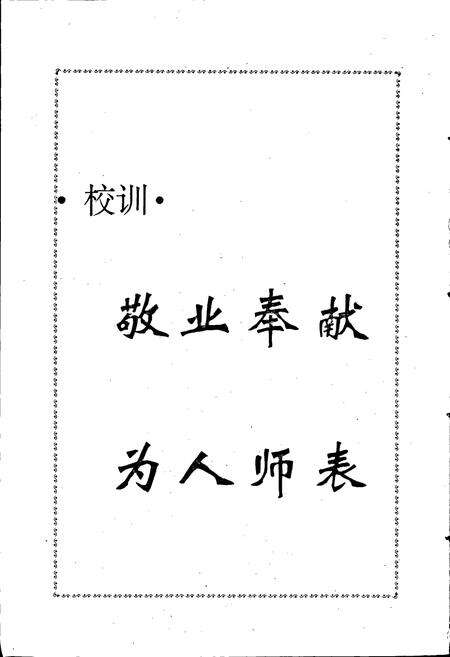 ·校训·
敬业奉献
为人师表